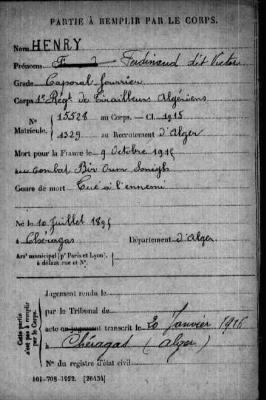 PARTIE À REMPLIR PAR LE CORPS.
Nom HENRY
Prénoms Ferdinand dit Victor
Grade Caporal fourrier
Corps 1er Régt de Tirailleurs Algériens
N° 15528 au Corps. — Cl. 1915
Matricule. 1329 au Recrutement d'Alger
Mort pour la France le 9 Octobre 191
au combat Bir Oum
Genre de mort Tué à l'ennemi
Né le 10 Juillet 189
à Chéragas Département d'Alger
Arrt municipal (pr Paris et Lyon),
à défaut rue et N°.
Cette partie
n'est pas à remplir
par le Corps.
Jugement rendu le
par le Tribunal de
acte ou jugement transcrit le 20 Janvier 1916
à Chéragas (Alger)
N° du registre d'état civil
101-708-1922. [26434]